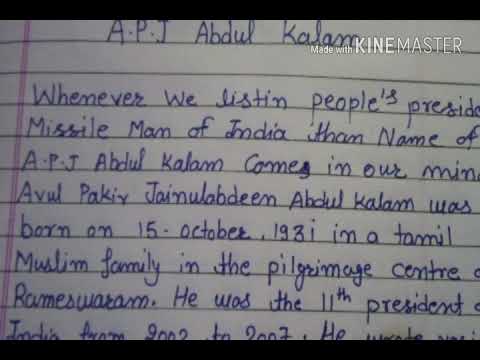 A.P.J Abdul Kalam
Made with KINEMASTER
Whenever We listin people's preside
Missile Man of India than Name of
A.P.J Abdul Kalam Comes in our mind
Avul Pakir Jainulabdeen Abdul Kalam was
born on 15-october, 1931 in a tamil
Muslim family in the pilgrimage centre o
Rameswaram. He was the 11th president o
India from 2002 to 2007. He wrote